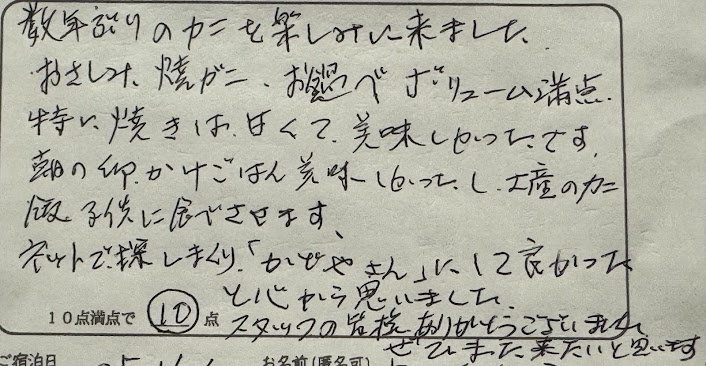 数年ぶりのカニを楽しみに来ました。
おさしみ、焼ガニ、お鍋べ ボリューム満点
特に焼きは、甘くて、美味しかったです。
朝の卵かけごはん美味しかったし、土産のカニ
飯 子供に食べさせます、
ネットで探しまくり、「かぜやさん」にして良かった
と心から思いました。
10点満点で 10 点 スタッフの皆様ありがとうございました
ぜひまた来たいと思います
ご宿泊日 お名前(匿名可)